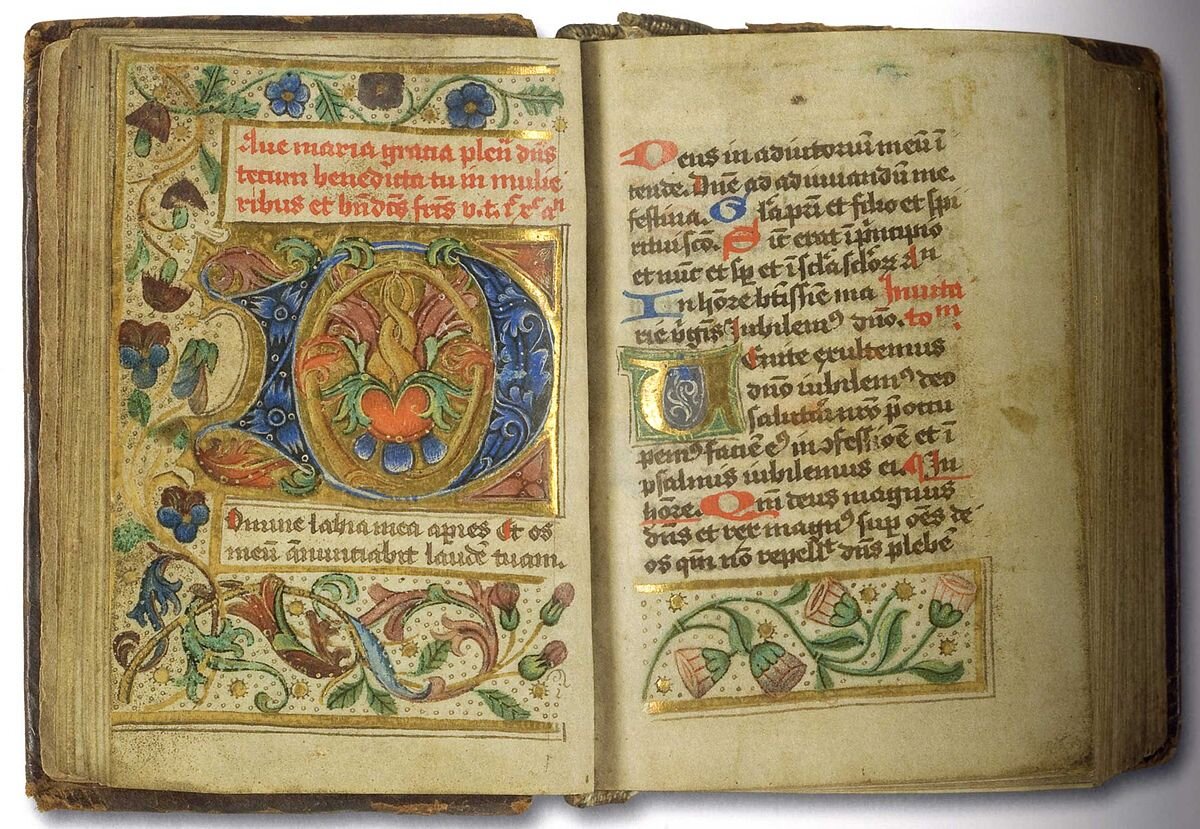 Aue maria gracia plen̄ dn̄s
tecum benedicta tu in mulie
ribus et bn̄dc̄s frc̄s v. t.
Domine labia mea apies Et os
meū ānunciabit laudē tuam.
Deus in adiutoriū meū ī
tende. Dn̄e ad adiuuandū me.
festina. Gla pr̄i et filio et spi
ritui sc̄o. Sic̄ erat ī p̄ncipio
et nūc et sp̄ et ī scl̄a scl̄oꝝ an
In hōre btīssīe ma Inuita
rie v̄gīs Iubilemꝰ dn̄o. toᵐ.
Uenite exultemus
dn̄o iubilemꝰ deo
salutari nr̄o p̄occu
pemꝰ faciēe eꝰ in ↄfessiōe et ī
psalmis iubilemus ei. In
hōre. Qm̄ deus magnus
dn̄s et rex magnꝰ suꝑ oēs de
os qm̄ nō repellᵗ dn̄s plebē